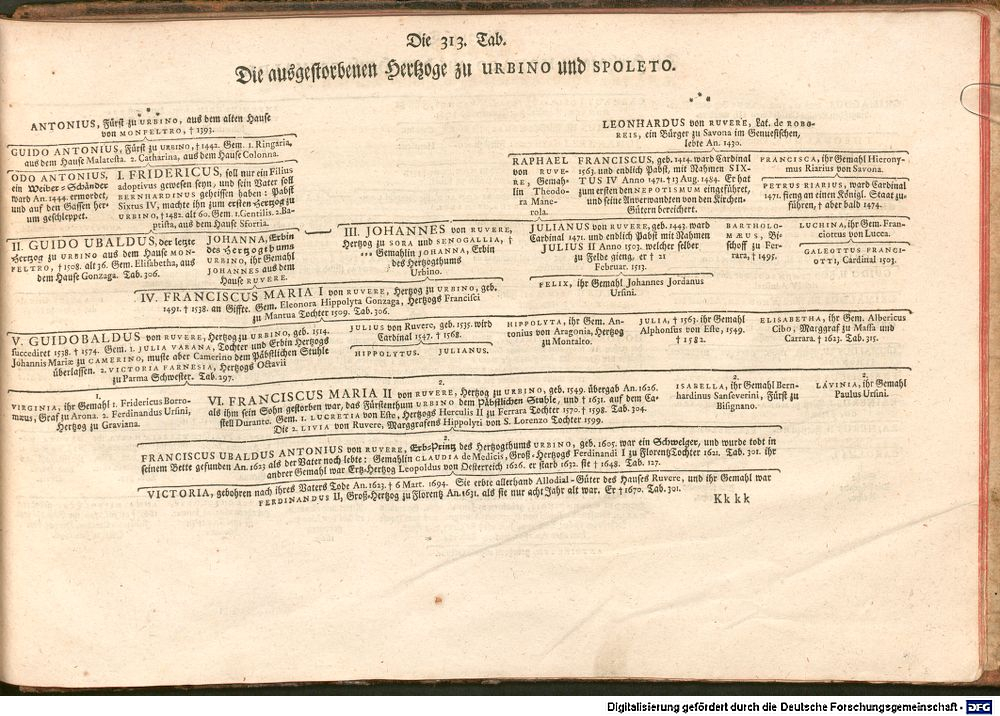 Die 313. Tab.
Die ausgestorbenen Hertzoge zu URBINO und SPOLETO.
ANTONIUS, Fürst zu URBINO, aus dem alten Hause
von MONFELTRO, † 1393.
GUIDO ANTONIUS, Fürst zu URBINO, † 1442. Gem. 1. Ringaria,
aus dem Hause Malatesta. 2. Catharina, aus dem Hause Colonna.
ODO ANTONIUS,
ein Weiber-Schänder
ward An. 1444. ermordet,
und auf den Gassen her-
um geschleppet.
I. FRIDERICUS, soll nur ein Filius
adoptivus gewesen seyn, und sein Vater soll
BERNHARDINUS geheissen haben: Pabst
Sixtus IV, machte ihn zum ersten Hertzog zu
URBINO, † 1482. alt 60. Gem. 1. Gentilis. 2. Ba-
ptista, aus dem Hause Sfortia.
II. GUIDO UBALDUS, der letzte
Hertzog zu URBINO aus dem Hause MON-
FELTRO, † 1508. alt 36. Gem. Elisabetha, aus
dem Hause Gonzaga. Tab. 306.
JOHANNA, Erbin
des Hertzogthums
URBINO, ihr Gemahl
JOHANNES aus dem
Hause RUVERE.
LEONHARDUS von RUVERE, Lat. de ROBO-
REIS, ein Bürger zu Savona im Genuesischen,
lebte An. 1430.
RAPHAEL
von RUVE-
RE, Gemah-
lin Theodo-
ra Mane-
rola.
FRANCISCUS, geb. 1414. ward Cardinal
1463. und endlich Pabst, mit Nahmen SIX-
TUS IV Anno 1471. † 13 Aug. 1484. Er hat
zum ersten den NEPOTISMUM eingeführet,
und seine Anverwandten von den Kirchen-
Gütern bereichert.
FRANCISCA, ihr Gemahl Hierony-
mus Riarius von Savona.
PETRUS RIARIUS, ward Cardinal
1471. fieng an einen Königl. Staat zu
führen, † aber bald 1474.
III. JOHANNES von RUVERE,
Hertzog zu SORA und SENOGALLIA, †
... Gemahlin JOHANNA, Erbin
des Hertzogthums
Urbino.
JULIANUS von RUVERE, geb. 1443. ward
Cardinal 1471. und endlich Pabst mit Nahmen
JULIUS II Anno 1503. welcher selber
zu Felde gieng, er † 21
Februar. 1513.
BARTHOLO-
MÆUS, Bi-
schoff zu Fer-
rara, † 1495.
LUCHINA, ihr Gem. Fran-
ciottus von Lucca.
GALEOTTUS FRANCI-
OTTI, Cardinal 1503.
FELIX, ihr Gemahl Johannes Jordanus
Ursini.
IV. FRANCISCUS MARIA I von RUVERE, Hertzog zu URBINO, geb.
1491. † 1538. an Giffte. Gem. Eleonora Hippolyta Gonzaga, Hertzogs Francisci
zu Mantua Tochter 1509. Tab. 306.
V. GUIDOBALDUS von RUVERE, Hertzog zu URBINO, geb. 1514.
succediret 1538. † 1574. Gem. 1. JULIA VARANA, Tochter und Erbin Hertzogs
Johannis Mariæ zu CAMERINO, muste aber Camerino dem Päbstlichen Stuhle
überlassen. 2. VICTORIA FARNESIA, Hertzogs Octavii
zu Parma Schwester. Tab. 297.
JULIUS von Ruvere, geb. 1535. wird
Cardinal 1547. † 1568.
HIPPOLYTUS. JULIANUS.
HIPPOLYTA, ihr Gem. An-
tonius von Aragonia, Hertzog
zu Montalto.
JULIA, † 1563. ihr Gemahl
Alphonsus von Este, 1549.
† 1582.
ELISABETHA, ihr Gem. Albericus
Cibo, Marggraf zu Massa und
Carrara. † 1623. Tab. 315.
1.
VIRGINIA, ihr Gemahl 1. Fridericus Borro-
mæus, Graf zu Arona. 2. Ferdinandus Ursini,
Hertzog zu Graviana.
2.
VI. FRANCISCUS MARIA II von RUVERE, Hertzog zu URBINO, geb. 1549. übergab An. 1626.
als ihm sein Sohn gestorben war, das Fürstenthum URBINO dem Päbstlichen Stuhle, und † 1631. auf dem Ca-
stell Durante. Gem. 1. LUCRETIA von Este, Hertzogs Herculis II zu Ferrara Tochter 1570. † 1598. Tab. 304.
Die 2. LIVIA von Ruvere, Marggrafens Hippolyti von S. Lorenzo Tochter 1599.
2.
ISABELLA, ihr Gemahl Bern-
hardinus Sanseverini, Fürst zu
Bisignano.
2.
LAVINIA, ihr Gemahl
Paulus Ursini.
2.
FRANCISCUS UBALDUS ANTONIUS von RUVERE, Erb-Printz des Hertzogthums URBINO, geb. 1605. war ein Schwelger, und wurde todt in
seinem Bette gefunden An. 1623 als der Vater noch lebte: Gemahlin CLAUDIA de Medicis, Groß-Hertzogs Ferdinandi I zu Florentz Tochter 1621. Tab. 301. ihr
andrer Gemahl war Ertz-Hertzog Leopoldus von Oesterreich 1626. er starb 1632. sie † 1648. Tab. 127.
VICTORIA, gebohren nach ihres Vaters Tode An. 1623. † 6 Mart. 1694. Sie erbte allerhand Allodial-Güter des Hauses Ruvere, und ihr Gemahl war
FERDINANDUS II, Groß-Hertzog zu Florentz An. 1631. als sie nur acht Jahr alt war. Er † 1670. Tab. 301.
Kk kk
Digitalisierung gefördert durch die Deutsche Forschungsgemeinschaft - DFG